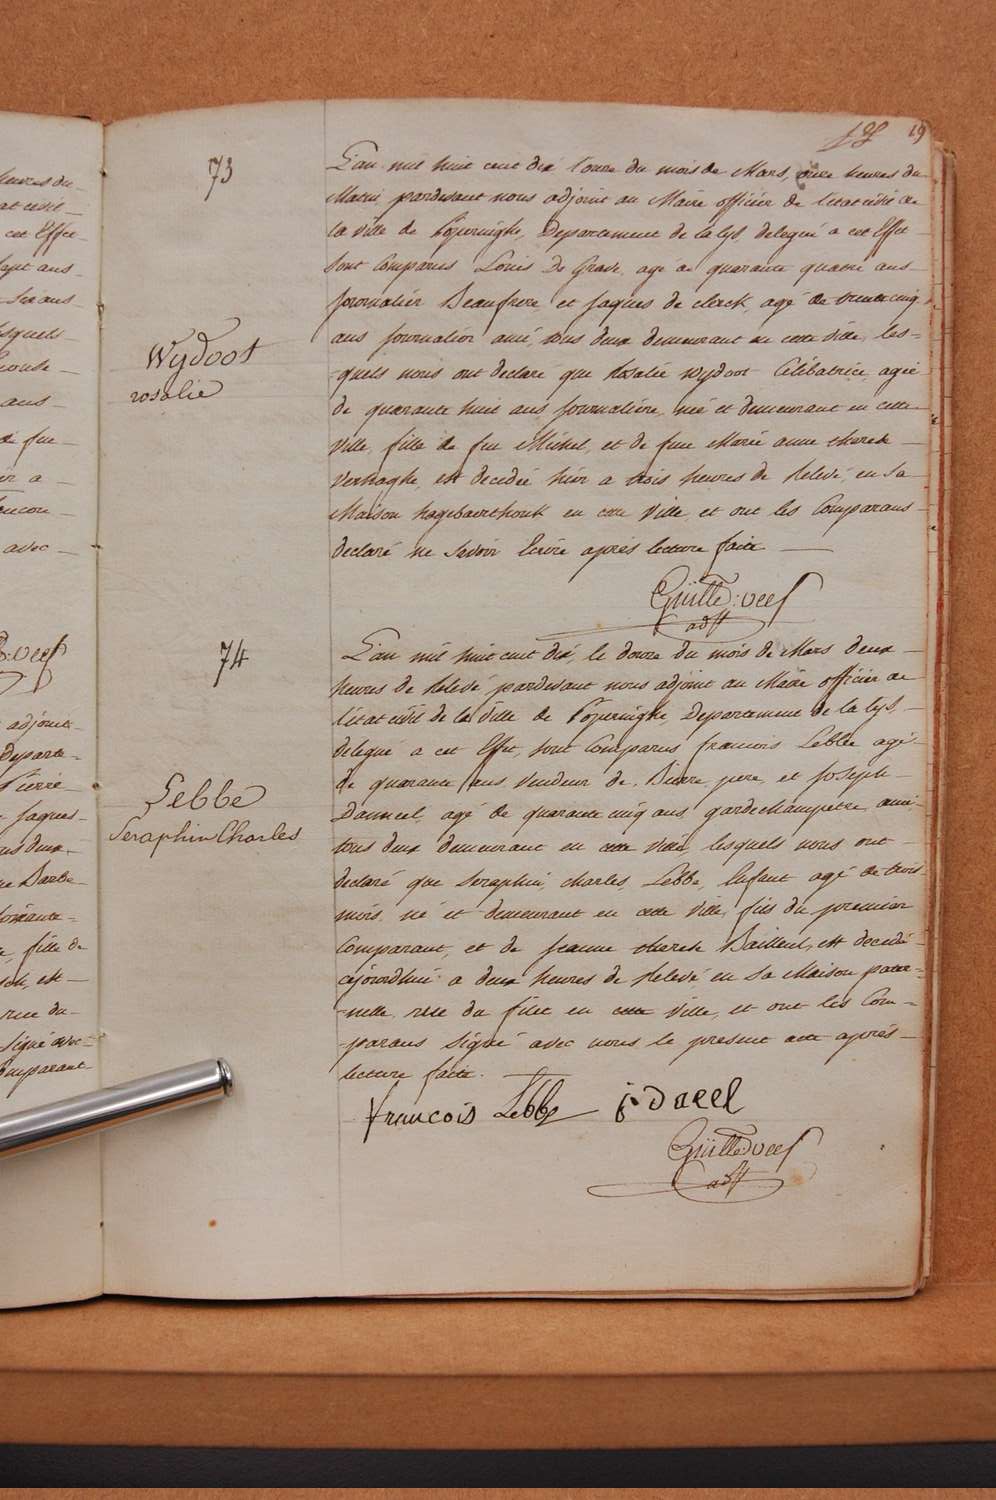 19
73
Wydoot
rosalie
L'an mil huit cent dix l'onze du mois de Mars, onze heures du
Matin, pardevant nous adjoint au Maire officier de l'etat civil de
la ville de Poperinghe, Departement de la lys, delegué a cet Effet
sont Comparus Louis De Grave, agé de quarante quatre ans
journalier Beaufrere, et Jaques de clerck, agé de trente cinq
ans journalier ami, tous deux demeurant en cette ville, les=
=quels nous ont declaré que Rosalie Wydoot Célibatrice, agée
de quarante huit ans, journalière, née et demeurant en cette
ville, fille de feu Michel, et de feue Marie anne therese
Verhaghe, est decedée hier a trois heures de Relevé, en sa
Maison hagebaerthouk en cette ville, et ont les Comparans
declaré ne Savoir Ecrire après lecture faite
adjt
74
Lebbe
Seraphin Charles
L'an mil huit cent dix, le douze du mois de Mars deux
heures de Relevé pardevant nous adjoint au Maire officier de
l'etat civil de la Ville de Poperinghe, Departement de la lys,
delegué a cet Effet, sont Comparus francois Lebbe agé
de quarante ans Vendeur de Bierre, pere, et Joseph
D'anneel, agé de quarante cinq ans, gardechampetre, ami,
tous deux demeurant en cette ville, lesquels nous ont
declaré que Seraphin, charles, Lebbe, Enfant agé de trois
mois, né et demeurant en cette Ville, fils du premier
Comparant, et de Jeanne therese Bailleul, est decedé
cejourdhui a deux heures de Relevé, en sa Maison pater=
=nelle, rue du filet en cette Ville, et ont les Com=
=parans Signé avec nous le present acte après
lecture faite.
francois Lebbe
adjt